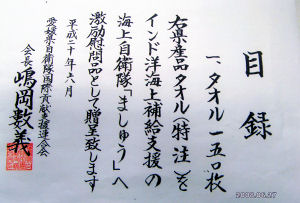 目録
一、タオル一五〇枚
右県産品タオル(特注)を
インド洋海上補給支援の
海上自衛隊「ましゅう」へ
激励慰問品として贈呈致します
平成二十年六月
愛媛県自衛隊国際貢献支援連合会
会長 嶋岡敦義
2008.06.27